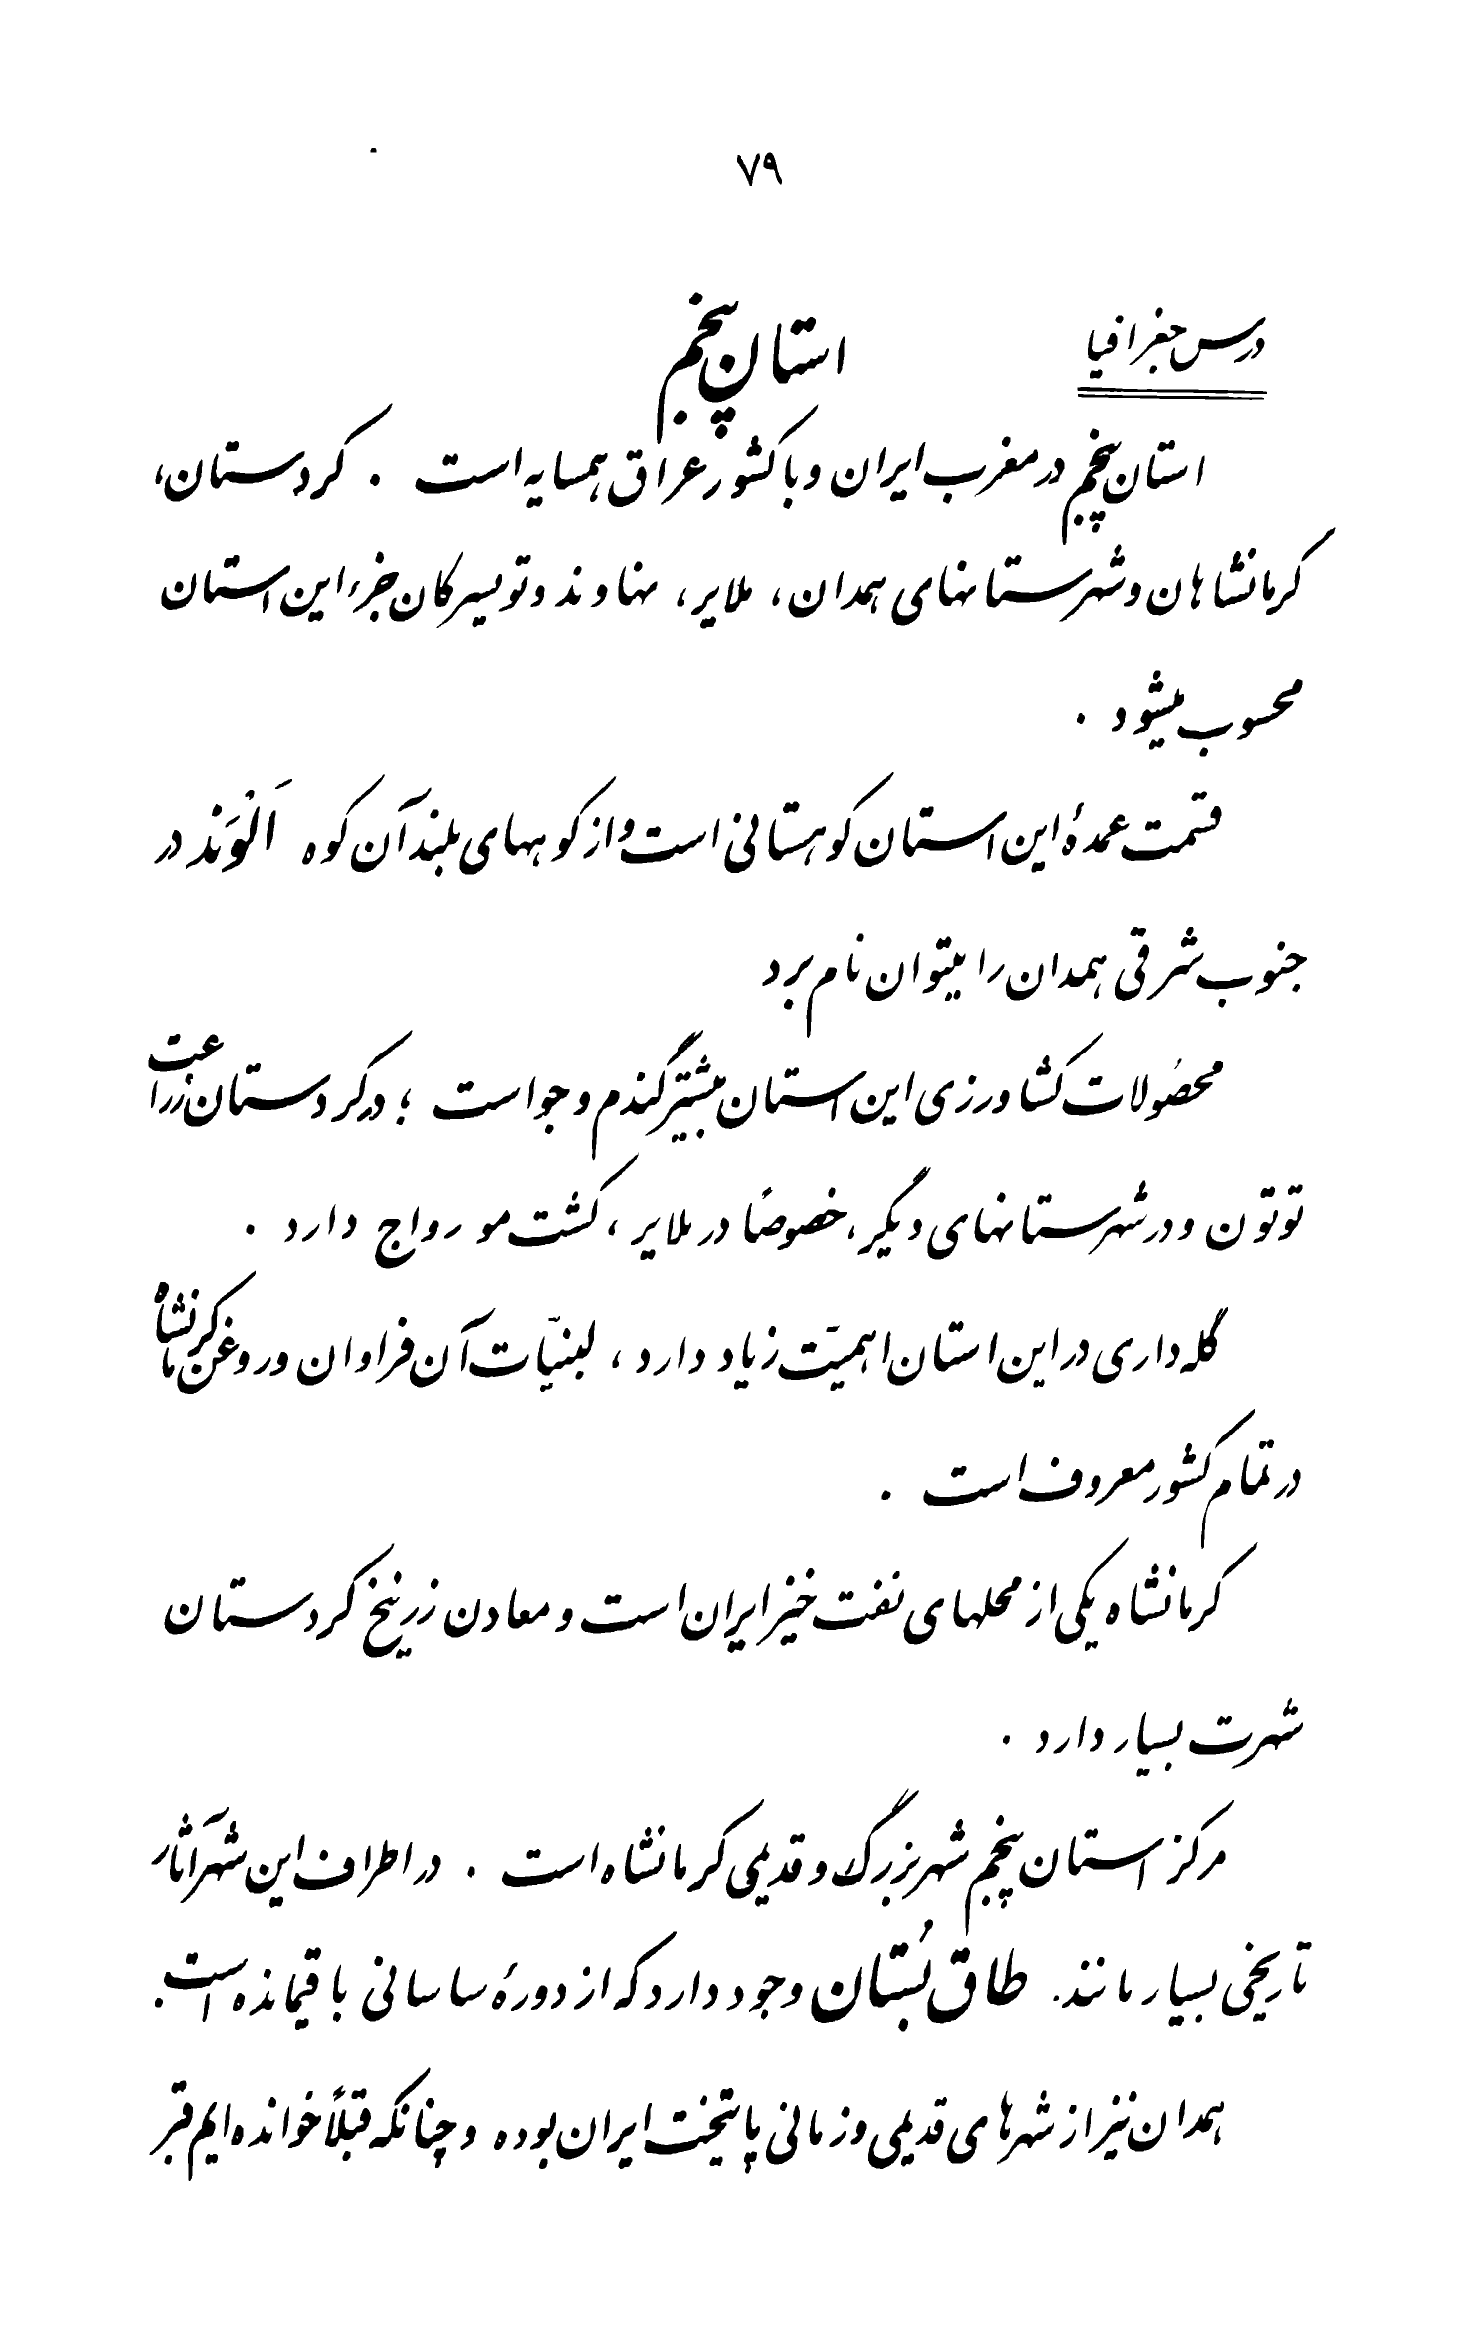 ۷۹
درس جغرافیا
استان پنجم
استان پنجم در مغرب ایران و با کشور عراق همسایه است . کردستان،
کرمانشاهان و شهرستانهای همدان، ملایر، نهاوند و تویسرکان جزء این استان
محسوب میشود .
قسمت عمدهٔ این استان کوهستانی است و از کوههای بلند آن کوه اَلْوَند در
جنوب شرقی همدان را میتوان نام برد
محصُولات کشاورزی این استان بیشتر گندم و جو است ؛ در کردستان زراعت
توتون و در شهرستانهای دیگر، خصوصاً در ملایر ، کشت مو رواج دارد .
گله‌داری در این استان اهمیّت زیاد دارد ، لبنیّات آن فراوان و روغن کرمانشاه
در تمام کشور معروف است .
کرمانشاه یکی از محلهای نفت خیز ایران است و معادن زرنیخ کردستان
شهرت بسیار دارد .
مرکز استان پنجم شهر بزرگ و قدیمی کرمانشاه است . در اطراف این شهر آثار
تاریخی بسیار مانند. طاق بُستان وجود دارد که از دورهٔ ساسانی باقیمانده است.
همدان نیز از شهرهای قدیمی و زمانی پایتخت ایران بوده و چنانکه قبلاً خوانده‌ایم قبر